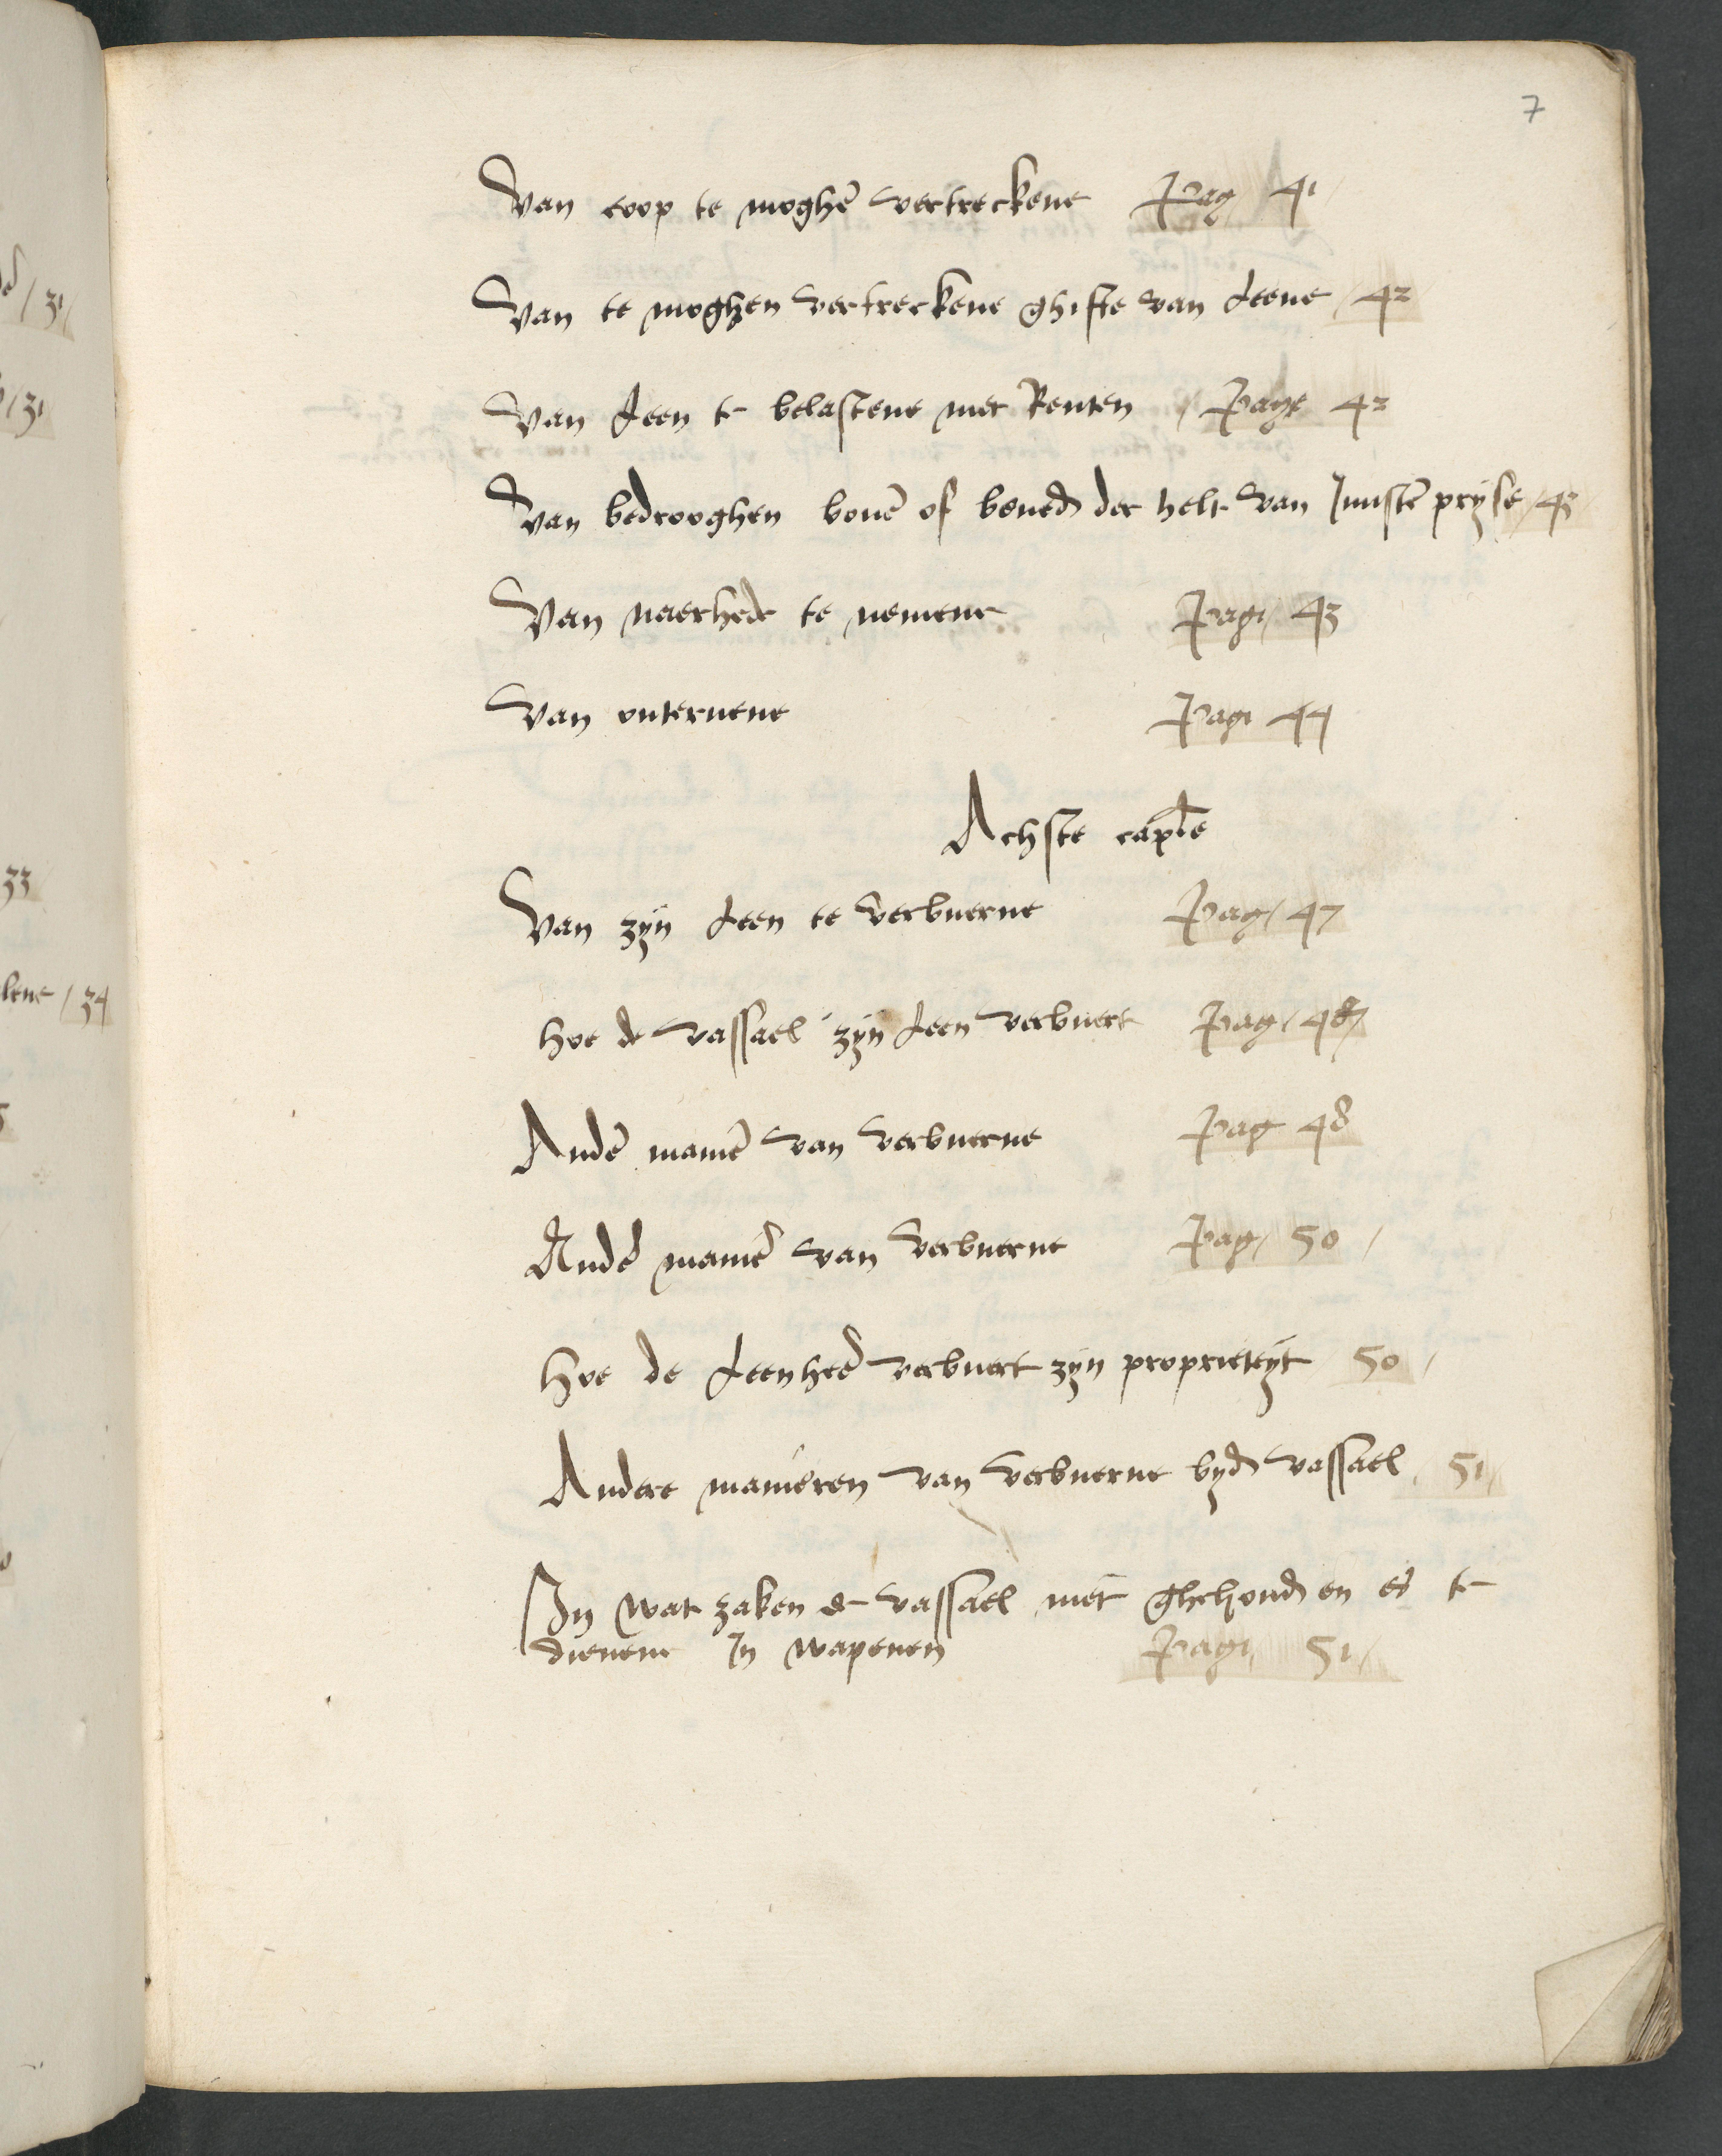 7
Van coop te moghē vertreckene Pag 41
Van te moghen vertreckene ghifte van Leene / 42
Van Leen te belastene met Renten / Page 42
Van bedrooghen bouē of bened der helt van Juustē pryse / 43
Van naerhede te nemene Pagi / 43
Van onteruene Pagi 44
Achste caple
Van zyn Leen te verbuerne Pag / 47
hoe de vassael zyn Leen verbuert Pag / 48
Andē maniē van verbuerne Pag 48
Andē maniē van verbuerne Pag / 50 /
hoe de Leenheē verbuert zyn proprieteyt 50 /
Andere manieren van verbuerne byd vassael 51 /
In wat zaken de vassael niet ghehoud en es te
dienene In wapenen Pagi 51 /
/ 31 /
/ 31
33
lene / 34